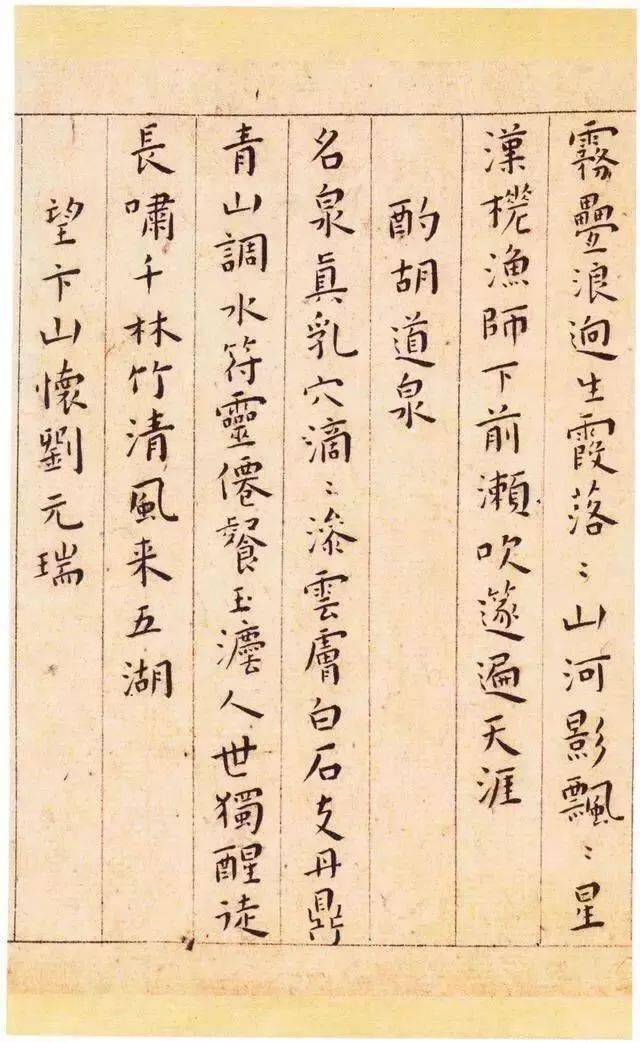 霧疊浪逈生霞落〻山河影飄〻星
漢槎漁師下前瀨吹篴遍天涯
酌胡道泉
名泉真乳穴滴〻滲雲膚白石支丹鼎
青山調水符靈僊餐玉瀣人世獨醒徒
長嘯千林竹清風来五湖
望卞山懷劉元瑞